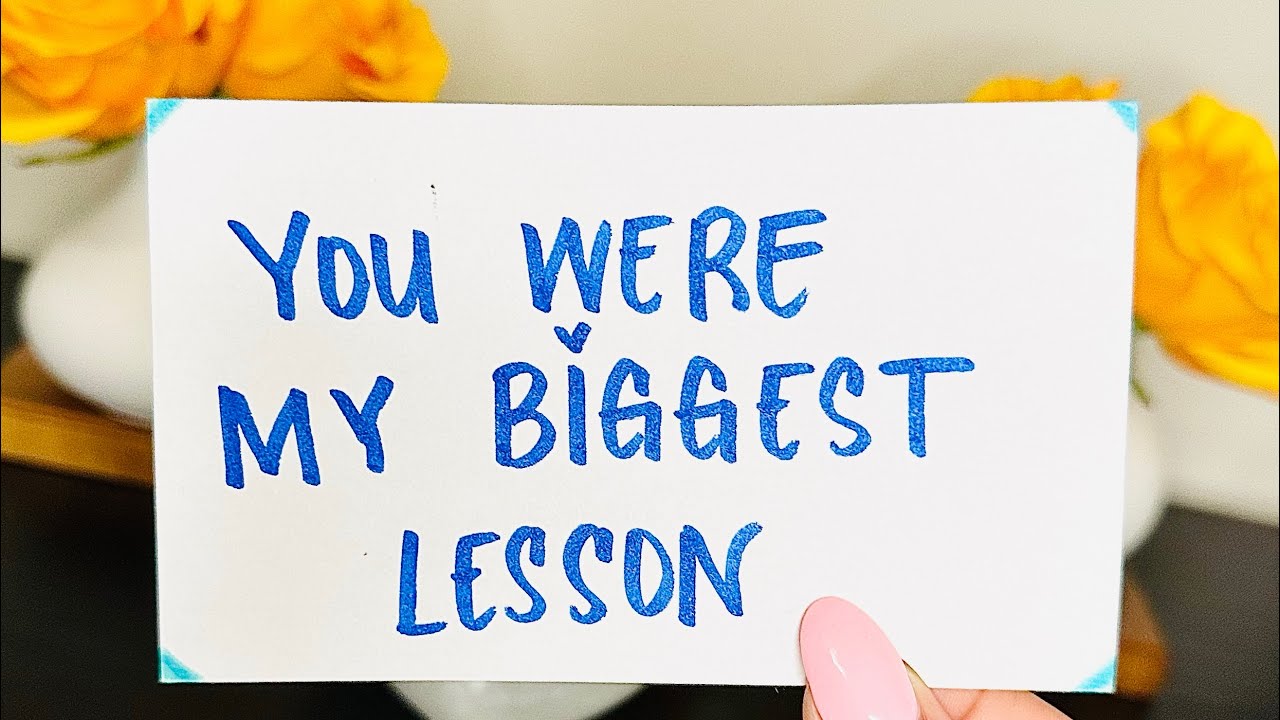 YOU WERE
MY BIGGEST
LESSON